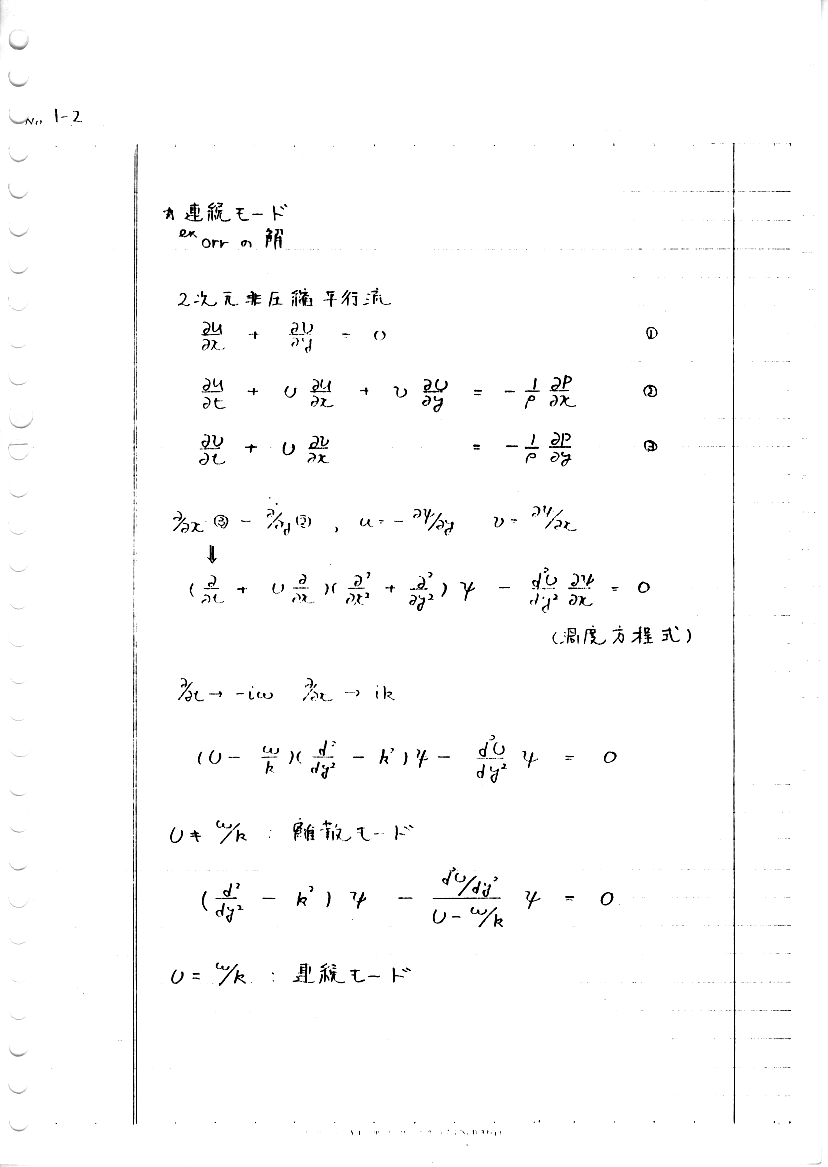 No. 1-2
☆ 連続モード
ex orr の解
2次元非圧縮平行流
∂u/∂x + ∂v/∂y = 0 ①
∂u/∂t + U ∂u/∂x + v ∂U/∂y = - 1/ρ ∂P/∂x ②
∂v/∂t + U ∂v/∂x = - 1/ρ ∂P/∂y ③
∂/∂x ③ - ∂/∂y ② , u = - ∂ψ/∂y v = ∂ψ/∂x
⇓
( ∂/∂t + U ∂/∂x )( ∂²/∂x² + ∂²/∂y² ) ψ - d²U/dy² ∂ψ/∂x = 0
(渦度方程式)
∂/∂t → -iω ∂/∂x → ik
( U - ω/k )( d²/dy² - k² ) ψ - d²U/dy² ψ = 0
U ≠ ω/k : 離散モード
( d²/dy² - k² ) ψ - (d²U/dy²)/(U - ω/k) ψ = 0
U = ω/k : 連続モード